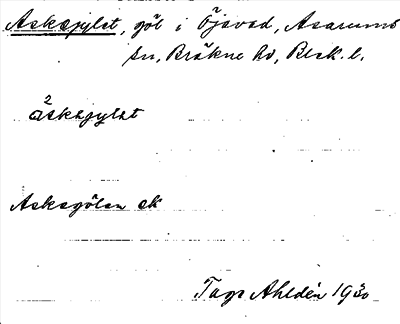 Askagylet, göl i Öjavad, Asarums
sn, Bräkne hd, Blek. l.
2
askagylet
Askagölen ek
Tage Ahldén 1930